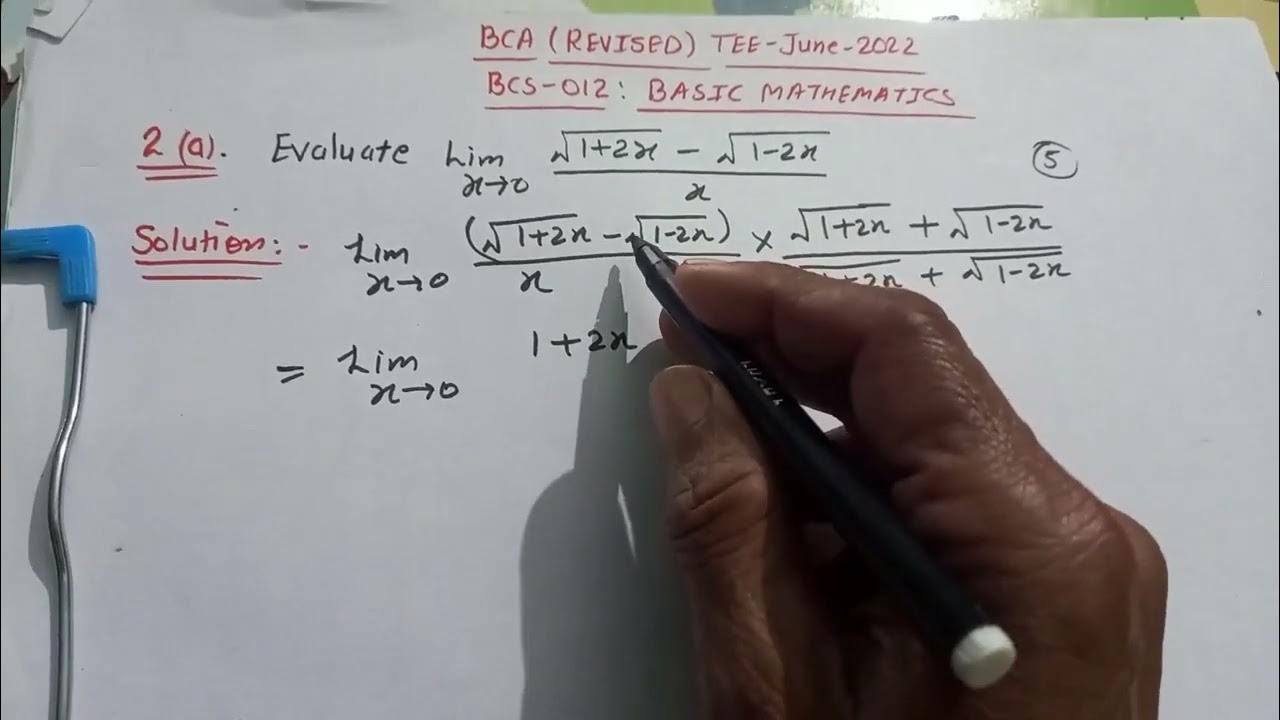 BCA (REVISED) TEE-June-2022
BCS-012: BASIC MATHEMATICS
2(a). Evaluate Lim x→0 (√(1+2x) - √(1-2x)) / x (5)
Solution:- Lim x→0 (√(1+2x) - √(1-2x)) / x × (√(1+2x) + √(1-2x)) / +2x + √(1-2x)
= Lim x→0 1+2x